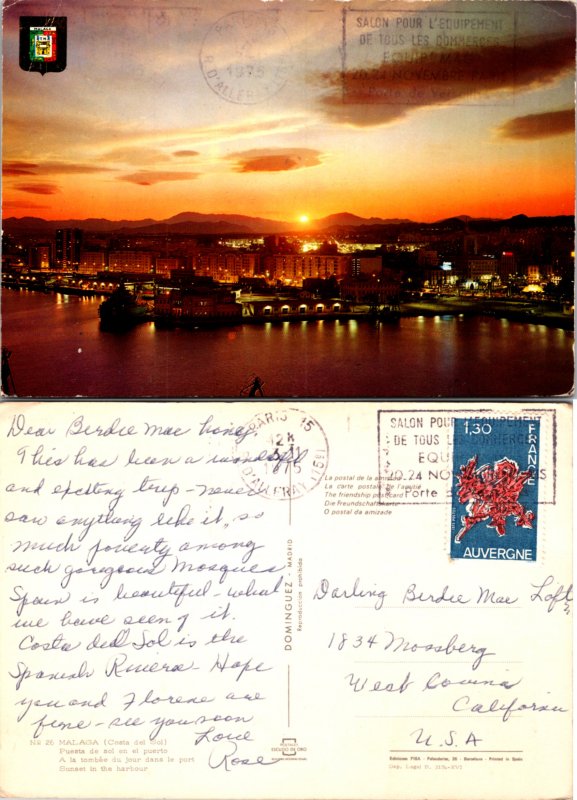 MALAGA
1975
R. D'ALLERAY (15e)
SALON POUR L'EQUIPEMENT
DE TOUS LES COMMERCES
20.24 NOVEMBRE
Porte de Versailles
Dear Birdie Mae honey
This has been a wonderful
and exciting trip - never
saw anything like it, so
much poverty among
such gorgeous Mosques
Spain is beautiful - what
we have seen of it.
Costa del Sol is the
Spanish Riviera - Hope
you and Florene are
fine - see you soon
Love
Rose
Nº 26 MALAGA (Costa del Sol)
Puesta de sol en el puerto
A la tombée du jour dans le port
Sunset in the harbour
PARIS 15
12H
1975
D'ALLERAY (15e)
La postal de la amistad
La carte postale de l'amitié
The friendship postcard
Die Freundschaftskarte
O postal da amizade
DOMINGUEZ - MADRID
Reproducción prohibida
POSTALES
ESCUDO DE ORO
SALON POUR L'EQUIPEMENT
DE TOUS LES COMMERCES
20.24 NOVEMBRE
Porte de
1,30
FRANCE
AUVERGNE
Darling Birdie Mae Loft
1834 Moosberg
West Covina
California
U.S.A
Ediciones FISA - Palaudarias, 26 - Barcelona - Printed in Spain
Dep. Legal B.